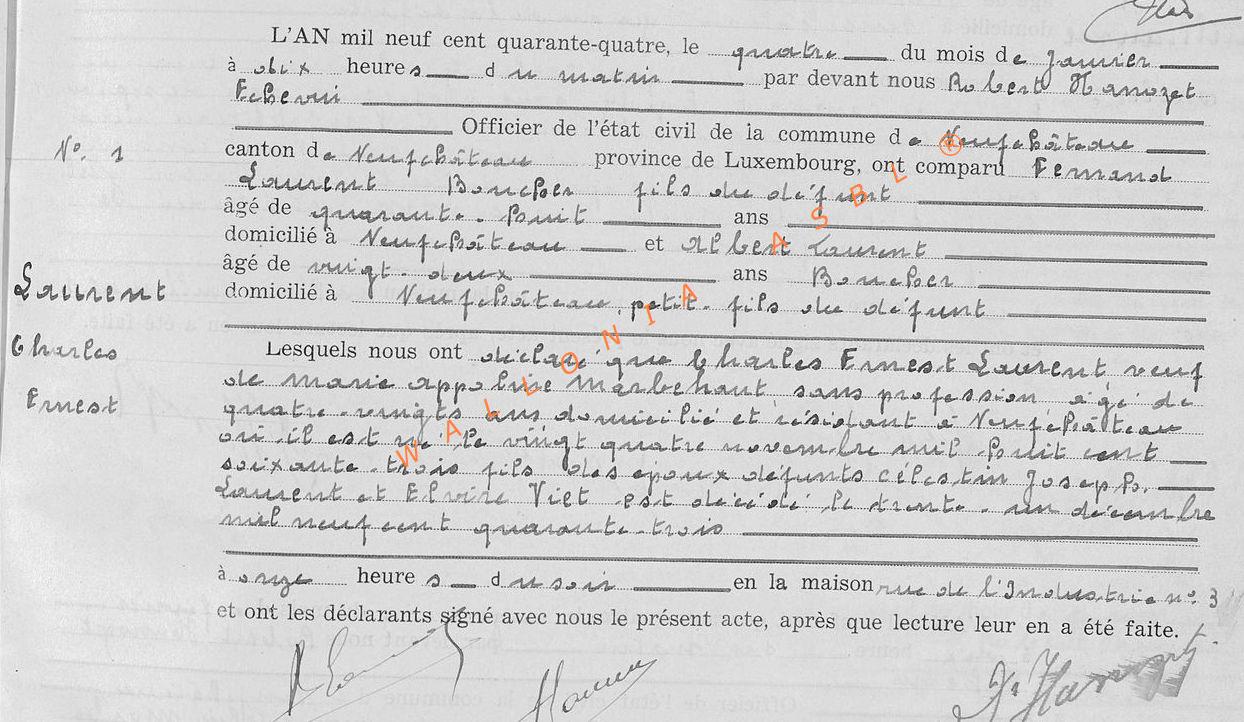 L'AN mil neuf cent quarante-quatre, le quatre du mois de Janvier
à dix heures du matin par devant nous Robert Hanozet
Echevin
Officier de l'état civil de la commune de Neufchâteau
N°. 1 canton de Neufchâteau province de Luxembourg, ont comparu Fernand
Laurent Boucher fils du défunt
âgé de quarante-huit ans
domicilié à Neufchâteau et Albert Laurent
âgé de vingt-deux ans Boucher
Laurent domicilié à Neufchâteau, petit-fils du défunt
Charles Lesquels nous ont déclaré que Charles Ernest Laurent veuf
de Marie Appoline Marbehant sans profession âgé de
Ernest quatre-vingts ans domicilié et résidant à Neufchâteau
où il est né le vingt quatre novembre mil huit cent
soixante-trois fils des époux défunts Célestin Joseph
Laurent et Elvire Viet est décédé le trente-un décembre
mil neuf cent quarante-trois
à onze heures du soir en la maison rue de l'Industrie n°. 3
et ont les déclarants signé avec nous le présent acte, après que lecture leur en a été faite.
WALLONIA ASBL